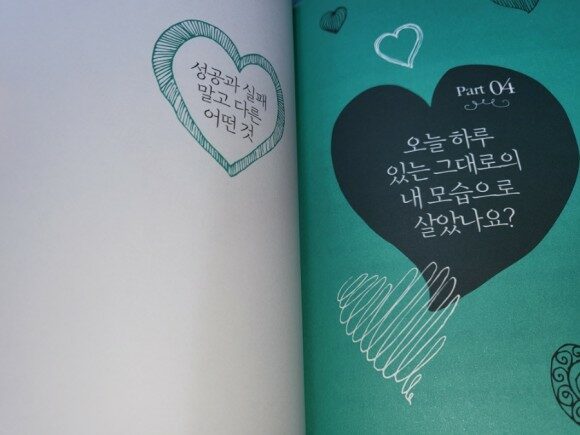 성공과 실패
말고 다른
어떤 것
Part 04
오늘 하루
있는 그대로의
내 모습으로
살았나요?